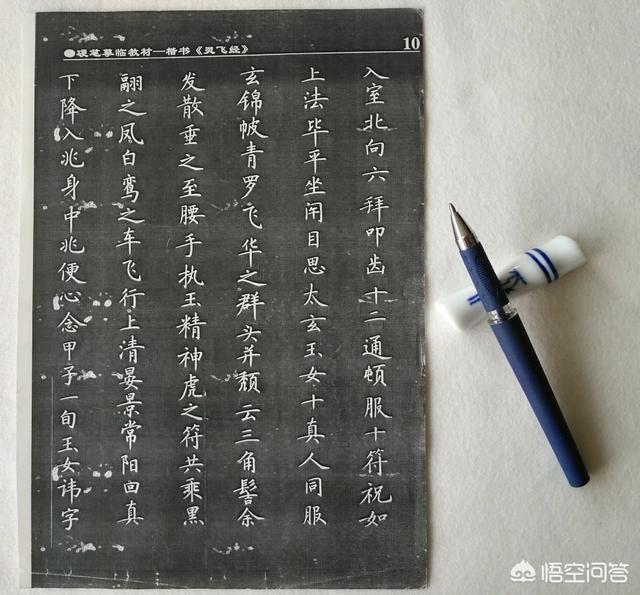 ●硬笔摹临教材—楷书《灵飞经》 10
入室北向六拜叩齿十二通顿服十符祝如
上法毕平坐闭目思太玄玉女十真人同服
玄锦帔青罗飞华之群头并颓云三角髻余
发散垂之至腰手执玉精神虎之符共乘黑
翮之凤白鸾之车飞行上清晏景常阳回真
下降入兆身中兆便心念甲子一旬玉女讳字
悟空问答